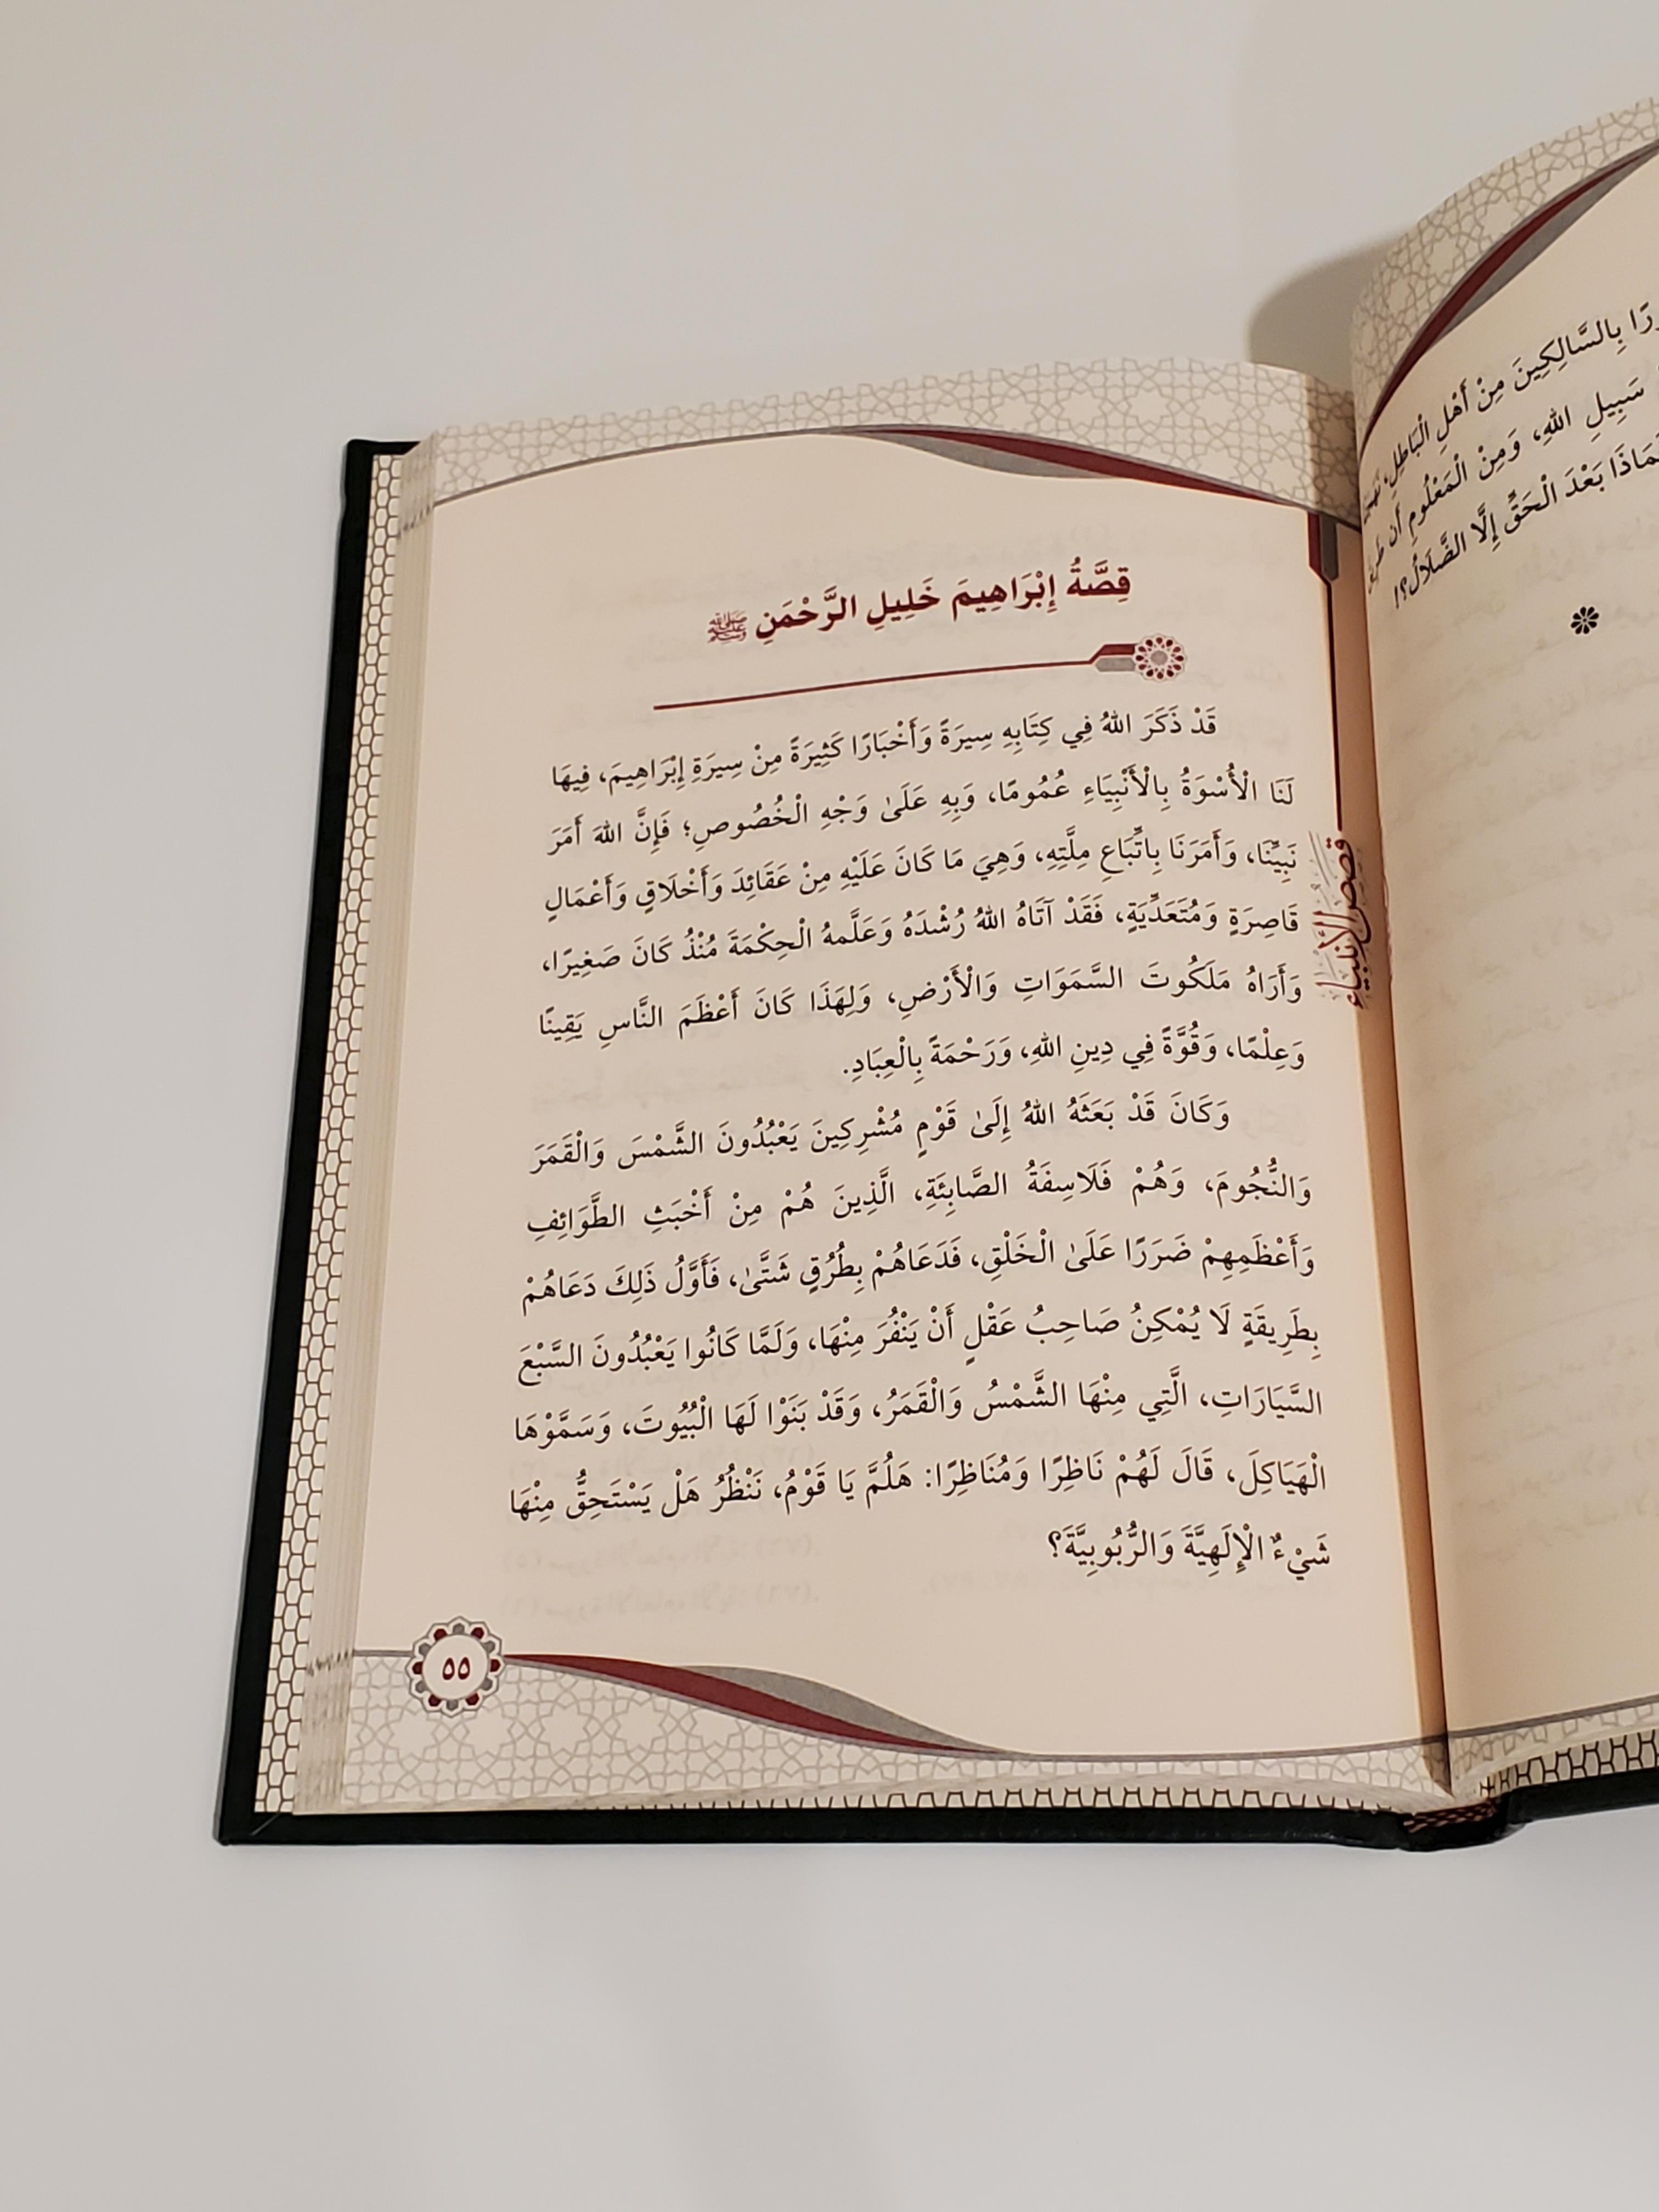 رًا بِالسَّالِكِينَ مِنْ أَهْلِ الْبَاطِلِ،
سَبِيلِ اللهِ، وَمِنْ الْمَعْلُومِ أَن
بَعْدَ الْحَقِّ إِلَّا الضَّلَالُ؟!
قِصَّةُ إِبْرَاهِيمَ خَلِيلِ الرَّحْمَنِ ﷺ
قَدْ ذَكَرَ اللهُ فِي كِتَابِهِ سِيرَةً وَأَخْبَارًا كَثِيرَةً مِنْ سِيرَةِ إِبْرَاهِيمَ، فِيهَا
لَنَا الْأُسْوَةُ بِالْأَنْبِيَاءِ عُمُومًا، وَبِهِ عَلَىٰ وَجْهِ الْخُصُوصِ؛ فَإِنَّ اللهَ أَمَرَ
نَبِيَّنَا، وَأَمَرَنَا بِاتِّبَاعِ مِلَّتِهِ، وَهِيَ مَا كَانَ عَلَيْهِ مِنْ عَقَائِدَ وَأَخْلَاقٍ وَأَعْمَالٍ
قَاصِرَةٍ وَمُتَعَدِّيَةٍ، فَقَدْ آتَاهُ اللهُ رُشْدَهُ وَعَلَّمهُ الْحِكْمَةَ مُنْذُ كَانَ صَغِيرًا،
وَأَرَاهُ مَلَكُوتَ السَّمَوَاتِ وَالْأَرْضِ، وَلِهَذَا كَانَ أَعْظَمَ النَّاسِ يَقِينًا
وَعِلْمًا، وَقُوَّةً فِي دِينِ اللهِ، وَرَحْمَةً بِالْعِبَادِ.
وَكَانَ قَدْ بَعَثَهُ اللهُ إِلَىٰ قَوْمٍ مُشْرِكِينَ يَعْبُدُونَ الشَّمْسَ وَالْقَمَرَ
وَالنُّجُومَ، وَهُمْ فَلَاسِفَةُ الصَّابِئَةِ، الَّذِينَ هُمْ مِنْ أَخْبَثِ الطَّوَائِفِ
وَأَعْظَمِهِمْ ضَرَرًا عَلَىٰ الْخَلْقِ، فَدَعَاهُمْ بِطُرُقٍ شَتَّىٰ، فَأَوَّلُ ذَلِكَ دَعَاهُمْ
بِطَرِيقَةٍ لَا يُمْكِنُ صَاحِبُ عَقْلٍ أَنْ يَنْفُرَ مِنْهَا، وَلَمَّا كَانُوا يَعْبُدُونَ السَّبْعَ
السَّيَارَاتِ، الَّتِي مِنْهَا الشَّمْسُ وَالْقَمَرُ، وَقَدْ بَنَوْا لَهَا الْبُيُوتَ، وَسَمَّوْهَا
الْهَيَاكِلَ، قَالَ لَهُمْ نَاظِرًا وَمُنَاظِرًا: هَلُمَّ يَا قَوْمُ، نَنْظُرُ هَلْ يَسْتَحِقُّ مِنْهَا
شَيْءٌ الْإِلَهِيَّةَ وَالرُّبُوبِيَّةَ؟
قصص الأنبياء
٥٥